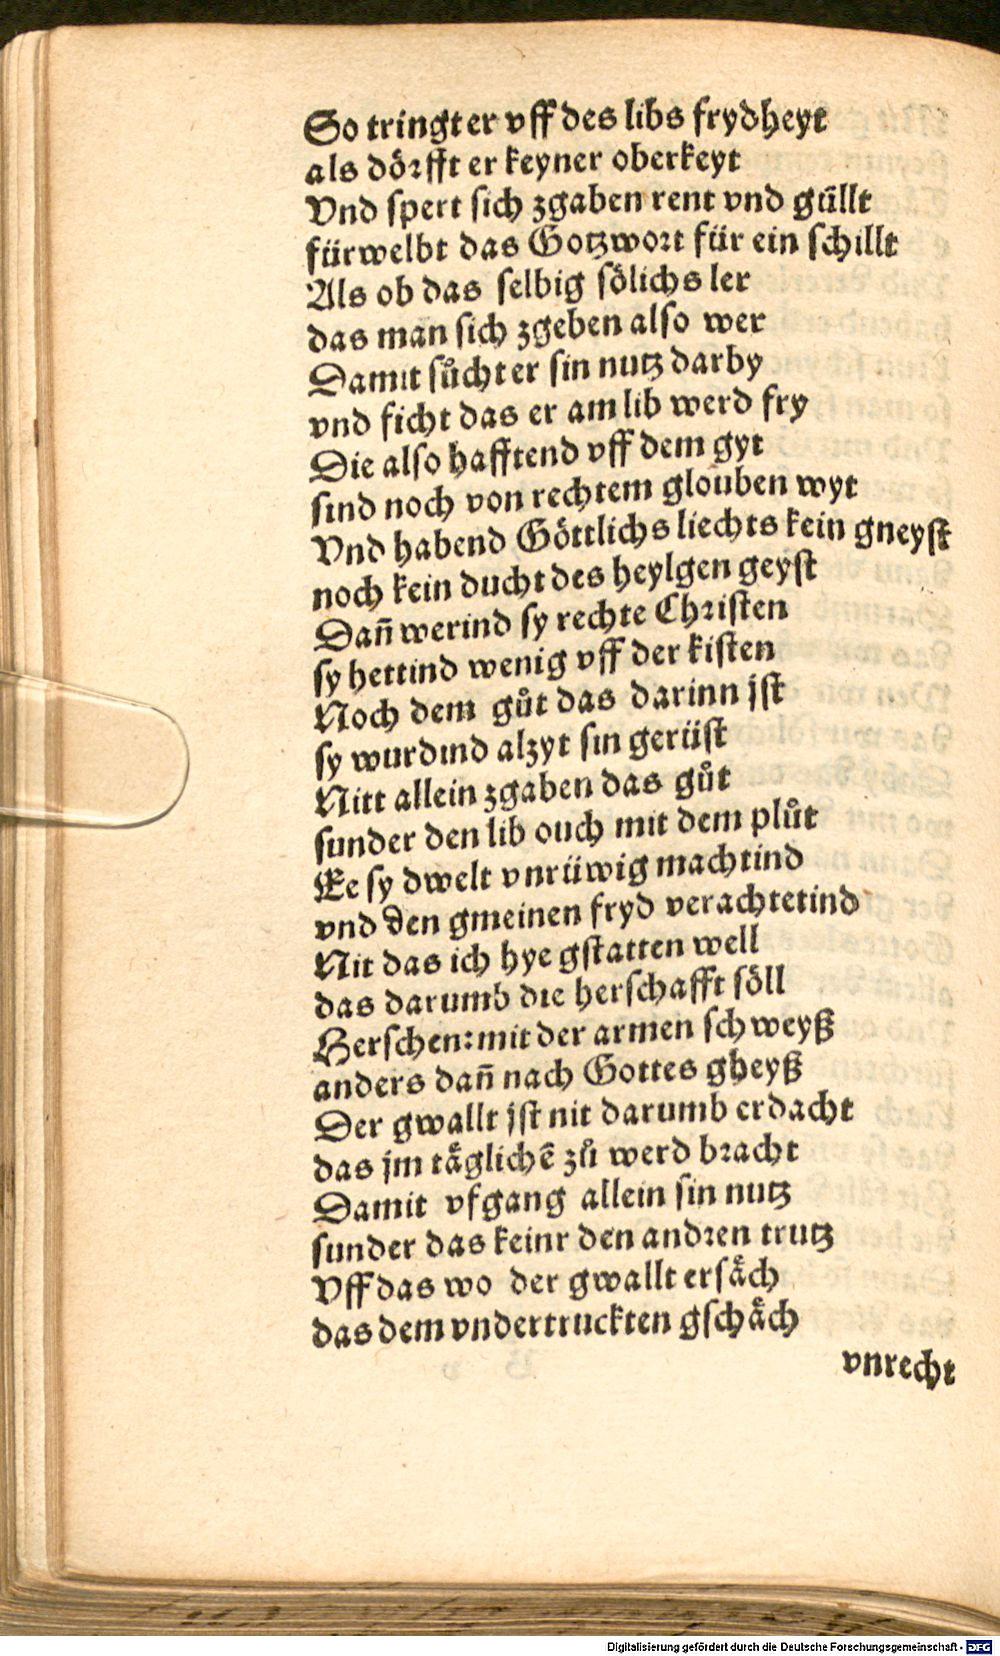 So tringt er vff des libs frydheyt
als dörfft er keyner oberkeyt
Vnd spert sich zgaben rent vnd güllt
fürwelbt das Gotzwort für ein schillt
Als ob das selbig sölichs ler
das man sich zgeben also wer
Damit sůcht er sin nutz darby
vnd ficht das er am lib werd fry
Die also hafftend vff dem gyt
sind noch von rechtem glouben wyt
Vnd habend Göttlichs liechts kein gneyst
noch kein ducht des heylgen geyst
Dañ werind sy rechte Christen
sy hettind wenig vff der kisten
Noch dem gůt das darinn jst
sy wurdind alzyt sin gerüst
Nitt allein zgaben das gůt
sunder den lib ouch mit dem plůt
Ee sy dwelt vnrüwig machtind
vnd den gmeinen fryd verachtetind
Nit das ich hye gstatten well
das darumb die herschafft söll
Herschen: mit der armen schweyß
anders dañ nach Gottes gheyß
Der gwallt jst nit darumb erdacht
das jm täglichẽ zů werd bracht
Damit vfgang allein sin nutz
sunder das keinr den andren trutz
Vff das wo der gwallt ersäch
das dem vndertruckten gschäch
vnrecht
Digitalisierung gefördert durch die Deutsche Forschungsgemeinschaft - DFG